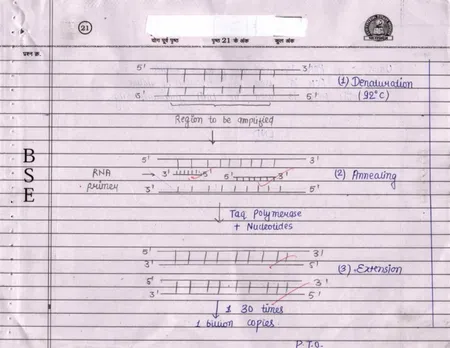 21
योग पूर्व पृष्ठ पृष्ठ 21 के अंक कुल अंक
प्रश्न क्र.
5' 3' (1) Denaturation
3' 5' (92°C)
Region to be amplified
5' 3'
RNA primer 3' 5' 5' 3' (2) Annealing
3' 5'
Taq Polymerase
+ Nucleotides
5' 3'
3' 5' (3) Extension
5' 3'
3' 5'
30 times
1 billion copies
P.T.O.
B
S
E